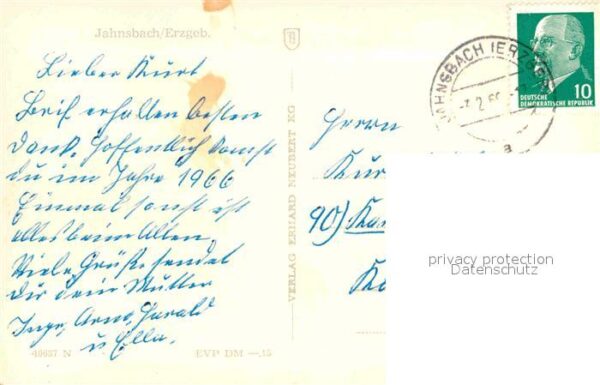 Jahnsbach/Erzgeb.
Lieber Kurt
Brif erhalten besten
Dank. Hoffentlich komst
du im Jahre 1966
Einmal sonst ist
alles beim Alten,
Viele Grüße sendet
Dir dein Mutter
Inge, Arno, Harald
u Ella.
40637 N
EVP DM —.15
VERLAG ERHARD NEUBERT KG
JAHNSBACH (ERZGEB
a
DEUTSCHE
DEMOKRATISCHE REPUBLIK
10
Herrn
Kur
90) Ka
privacy protection
Datenschutz